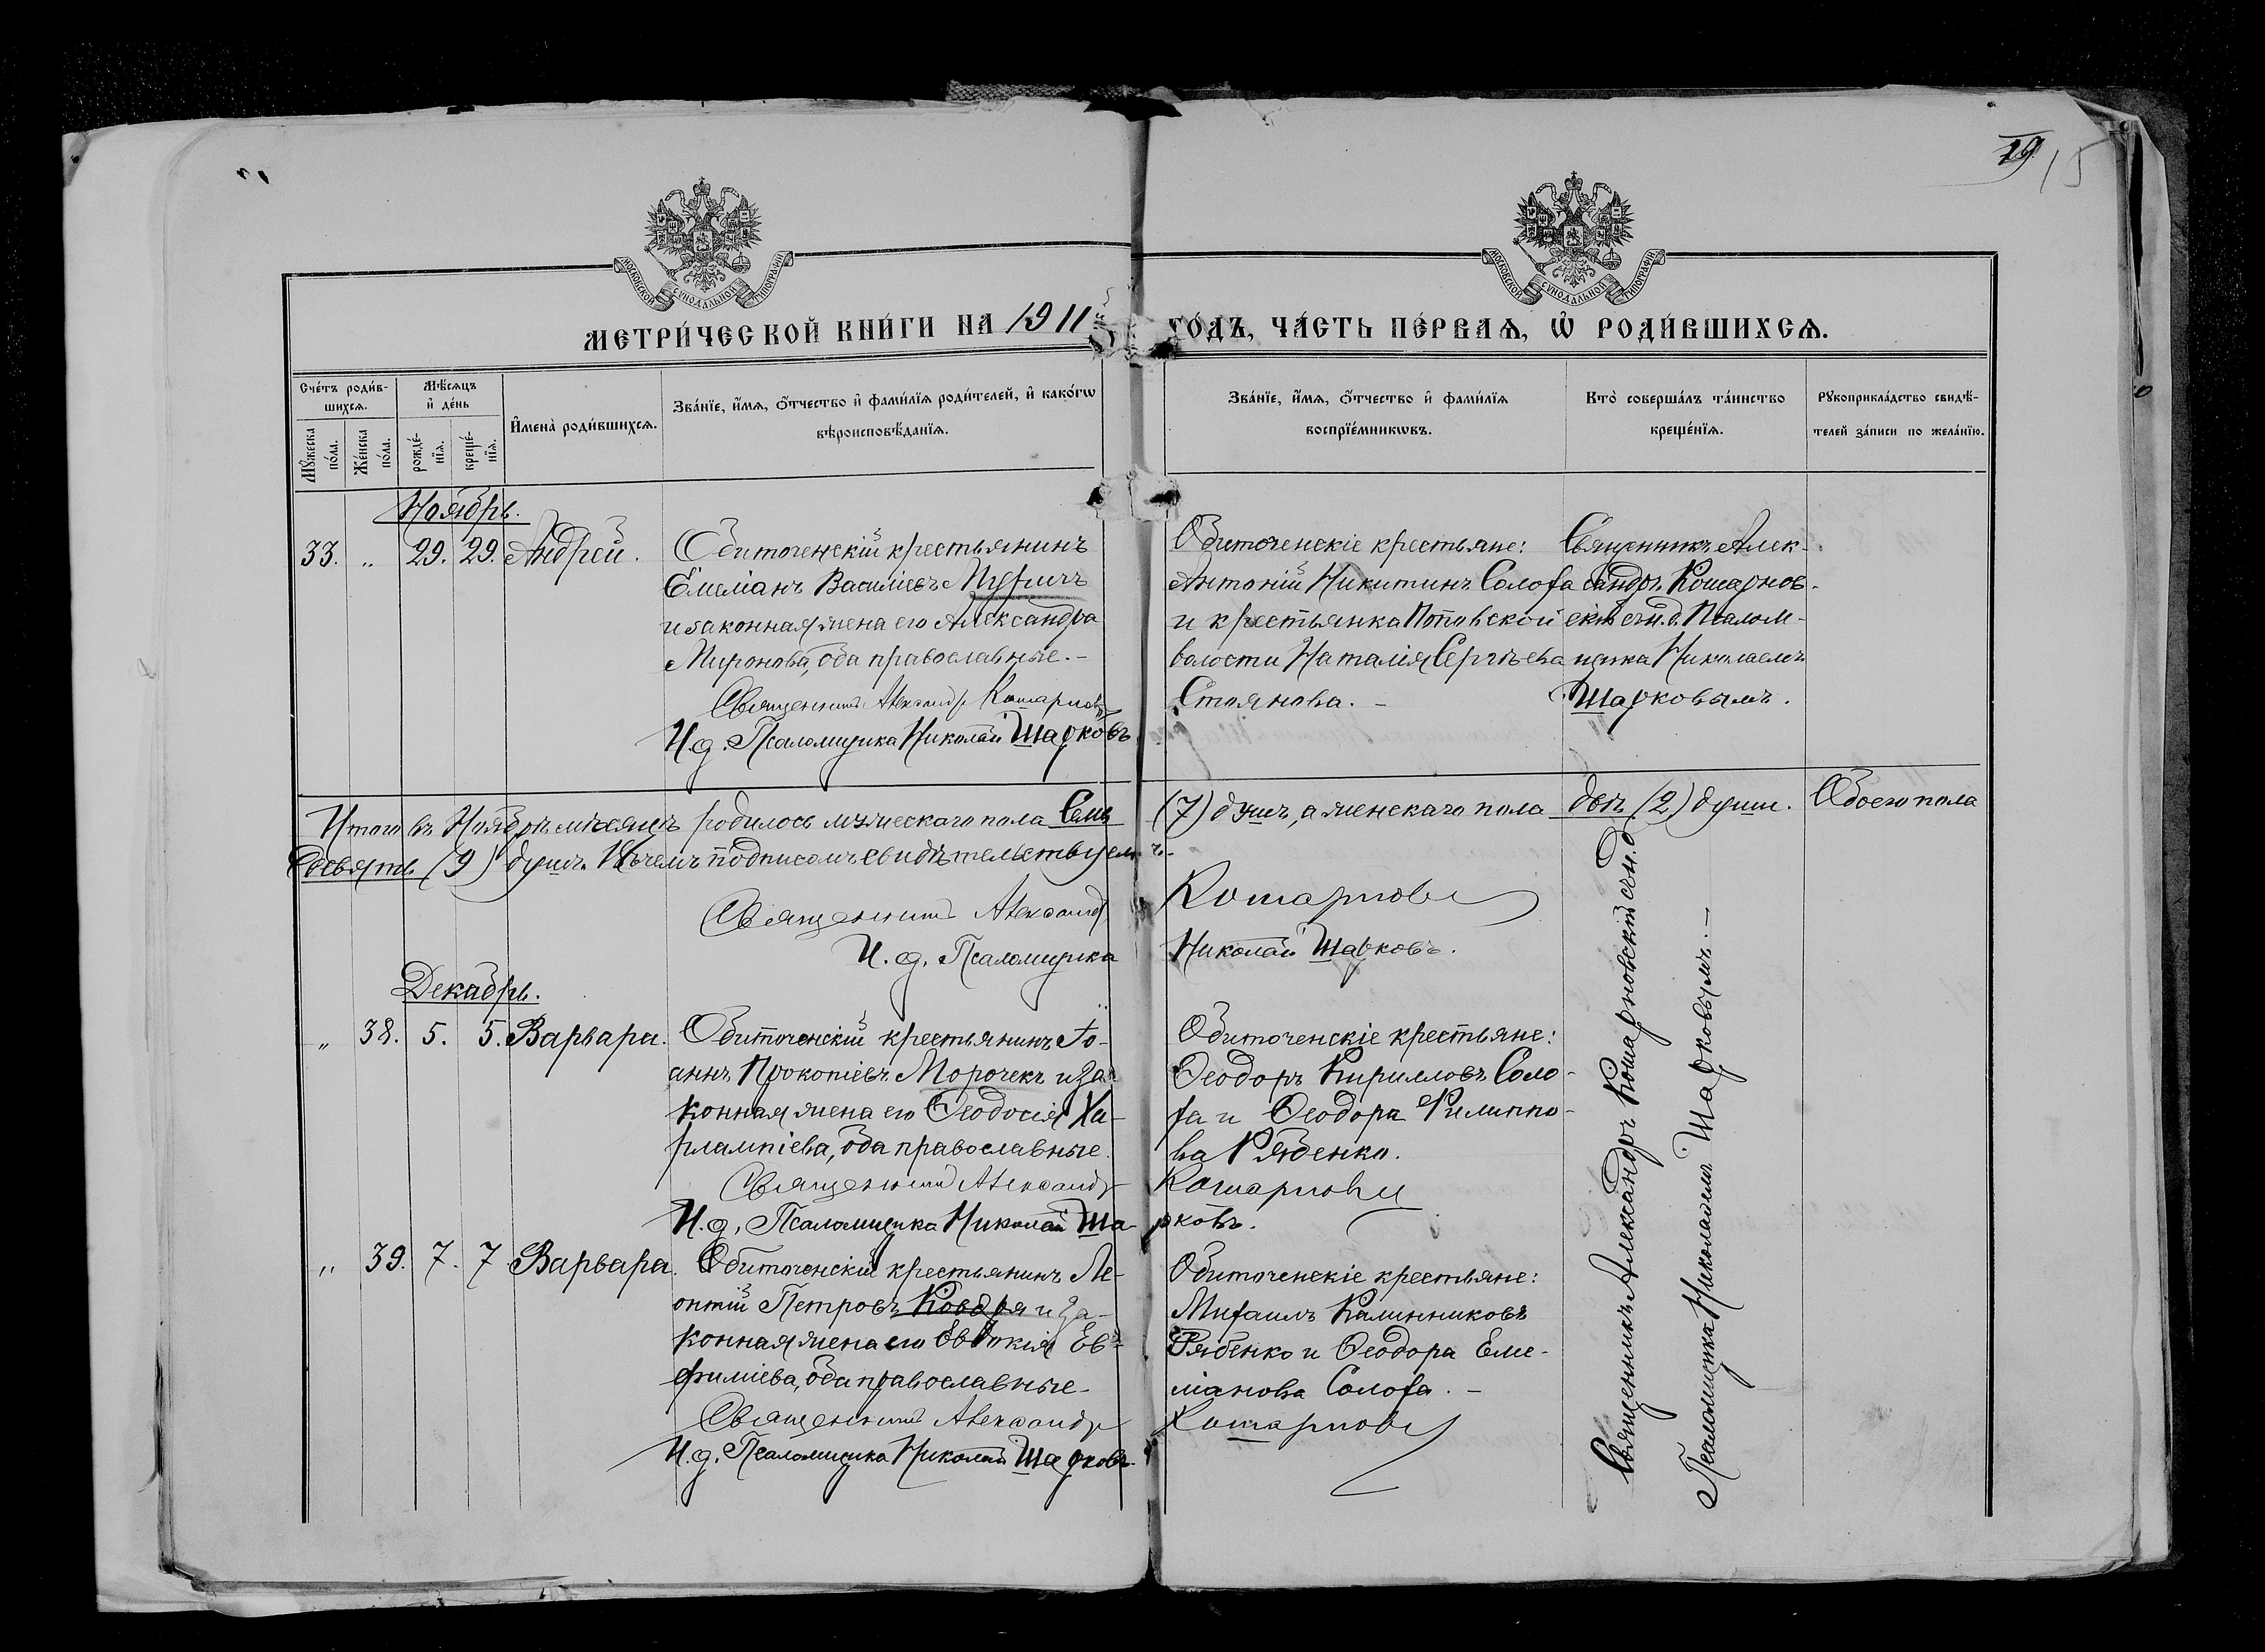 19 15
МОСКОВСКОЙ СѴНОДАЛЬНОЙ ТИПОГРАФІИ
МОСКОВСКОЙ СѴНОДАЛЬНОЙ ТИПОГРАФІИ
МЕТРИ́ЧЕСКОЙ КНИ́ГИ НА 1911й ГО́ДЪ, ЧА́СТЬ ПЕ́РВАѦ, Ѡ҆ РОДИ́ВШИХСѦ.
Сче́тъ роди́в-
шихсѧ.
Мꙋ́жеска по́ла.
Же́нска по́ла.
Мѣ́сѧцъ
и҆ де́нь
рожде́-
нїѧ.
креще́-
нїѧ.
И҆мена̀ роди́вшихсѧ.
Зва́нїе, и҆́мѧ, ѻ҆́тчество и҆ фами́лїѧ роди́телей, и҆ како́гѡ
вѣроисповѣ́данїѧ.
Зва́нїе, и҆́мѧ, ѻ҆́тчество и҆ фами́лїѧ
воспрїе́мникѡвъ.
Кто̀ соверша́лъ та́инство
креще́нїѧ.
Рꙋкоприкла́дство свидѣ́-
телей за́писи по жела́нїю.
Ноябрь.
33. „ 29. 29. Андрей.
Обиточенскій крестьянинъ
Емеліанъ Василіевъ
и законная жена его Александра
Миронова, оба православные. -
Священникъ Александр Кошарновскій
И. д. Псаломщика Николай Шарковъ
Обиточенскіе крестьяне:
Антоній Никитинъ Солоха
и крестьянка Поповской
волости Наталія Сергѣева
Стоянова. -
Священникъ Алек-
сандръ Кошарнов-
скій съ и. д. Псалом-
щика Николаемъ
Шарковымъ.
Итого въ Ноябрѣ мѣсяцѣ родилось мужескаго пола Семь (7) душъ, а женскаго пола двѣ (2) души. Обоего пола
девять (9) душъ. Въ чемъ подписомъ свидѣтельствуемъ -
Священникъ Александр Кошарновскій
И. д. Псаломщика Николай Шарковъ.
Декабрь.
„ 38. 5. 5. Варвара.
Обиточенскій крестьянинъ Іо-
аннъ Прокопіевъ Морочекъ и за-
конная жена его Ѳеодосія Ха-
рлампіева, оба православные.
Священникъ Александр Кошарновскій
И. д. Псаломщика Николай Шарковъ.
Обиточенскіе крестьяне:
Ѳеодоръ Кирилловъ Соло-
ха и Ѳеодора Филиппо-
ва Рябенко.
„ 39. 7. 7 Варвара.
Обиточенскій крестьянинъ Ле-
онтій Петровъ Ковдря и за-
конная жена его Евдокія Ев-
фиміева, оба православные -
Священникъ Александр Кошарновскій
И. д. Псаломщика Николай Шарковъ.
Обиточенскіе крестьяне:
Михаилъ Калинниковъ
Рябенко и Ѳеодора Еме-
ліанова Солоха. -
Священникъ Александръ Кошарновскій съ и. д.
Псаломщика Николаемъ Шарковымъ. -